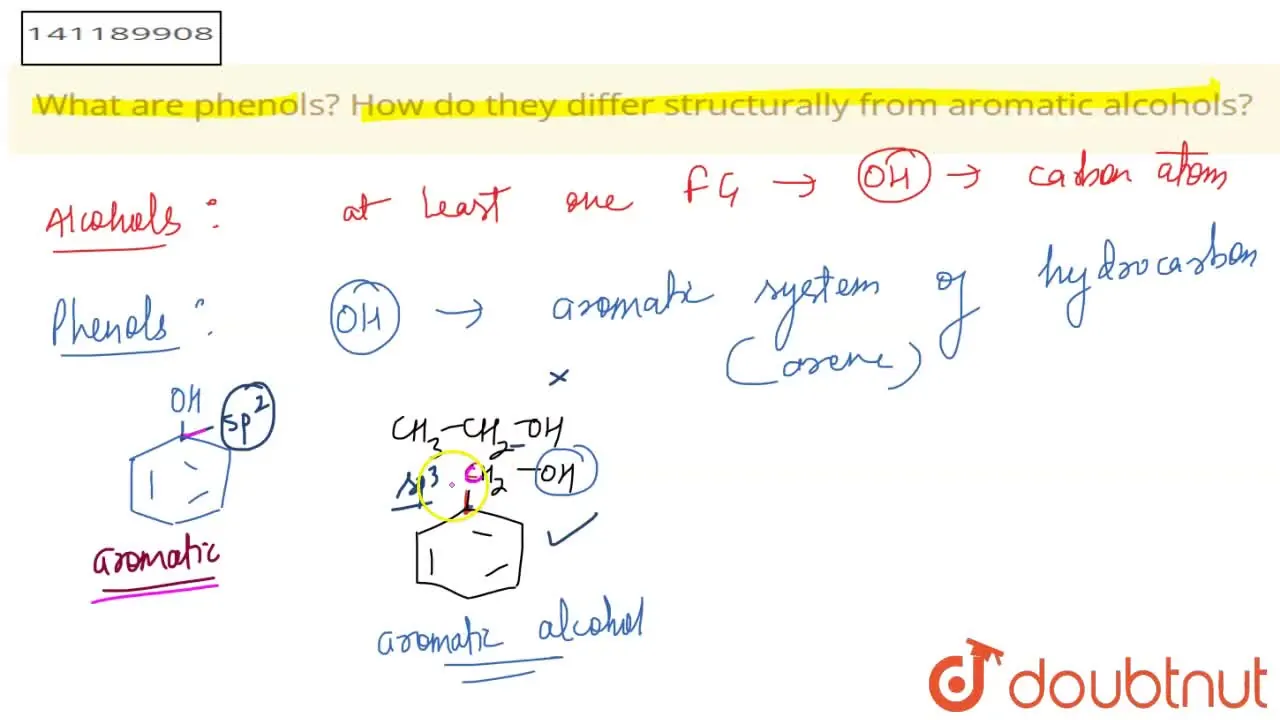 141189908
What are phenols? How do they differ structurally from aromatic alcohols?
Alcohols : at least one FG → OH → carbon atom
Phenols : OH → aromatic system of hydrocarbon
(arene)
×
OH sp²
CH₃-CH₂-OH
sp³ CH₂-OH
✓
aromatic
aromatic alcohol
doubtnut